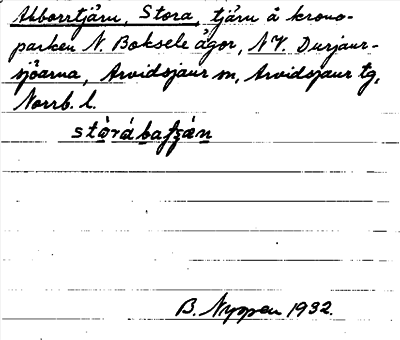 Abborrtjärn, Stora, tjärn å krono-
parken N. Boksele ågor, NV. Durjaur-
sjöarna, Arvidsjaur sn, Arvidsjaur tg,
Norrb. l.
B. Nyppen 1932.